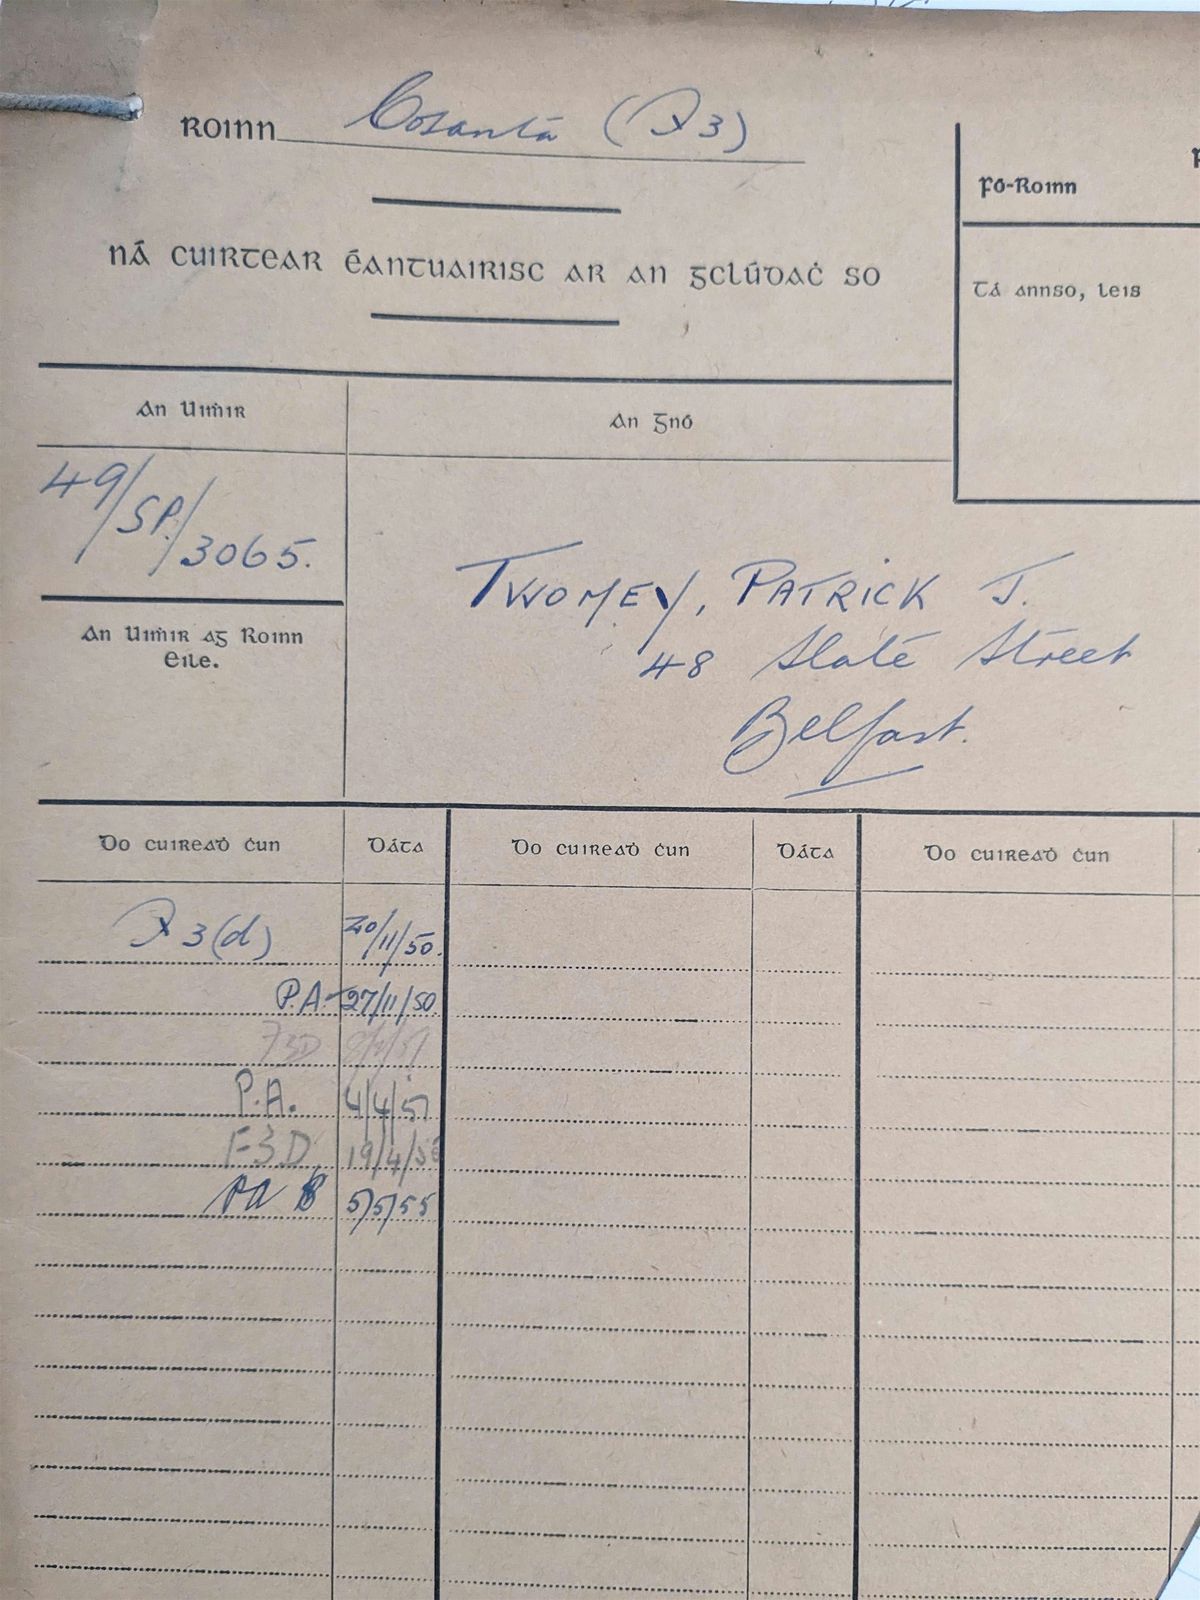 Roinn Cosanta (F 3)
Fó-Roinn
ná cuirtear éantuairisc ar an gclúdaċ so
Tá annso, leis
An Uiṁir
An Gnó
49/SP/3065.
TWOMEY, PATRICK J.
48 Slate Street
Belfast.
An Uiṁir ag Roinn
Eile.
Do cuireaḋ ċun Dáta Do cuireaḋ ċun Dáta Do cuireaḋ ċun
F 3(d) 20/11/50.
P.A. 27/11/50
F3D
P.A. 4/4/51
F3D 19/4/55
PA 5/5/55